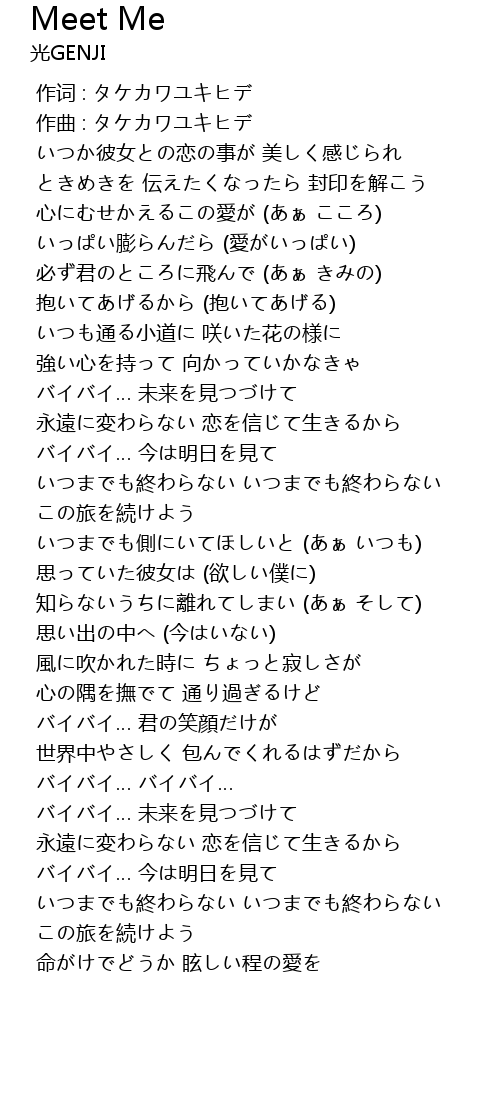 Meet Me
光GENJI
作词 : タケカワユキヒデ
作曲 : タケカワユキヒデ
いつか彼女との恋の事が 美しく感じられ
ときめきを 伝えたくなったら 封印を解こう
心にむせかえるこの愛が (あぁ こころ)
いっぱい膨らんだら (愛がいっぱい)
必ず君のところに飛んで (あぁ きみの)
抱いてあげるから (抱いてあげる)
いつも通る小道に 咲いた花の様に
強い心を持って 向かっていかなきゃ
バイバイ... 未来を見つづけて
永遠に変わらない 恋を信じて生きるから
バイバイ... 今は明日を見て
いつまでも終わらない いつまでも終わらない
この旅を続けよう
いつまでも側にいてほしいと (あぁ いつも)
思っていた彼女は (欲しい僕に)
知らないうちに離れてしまい (あぁ そして)
思い出の中へ (今はいない)
風に吹かれた時に ちょっと寂しさが
心の隅を撫でて 通り過ぎるけど
バイバイ... 君の笑顔だけが
世界中やさしく 包んでくれるはずだから
バイバイ... バイバイ...
バイバイ... 未来を見つづけて
永遠に変わらない 恋を信じて生きるから
バイバイ... 今は明日を見て
いつまでも終わらない いつまでも終わらない
この旅を続けよう
命がけでどうか 眩しい程の愛を